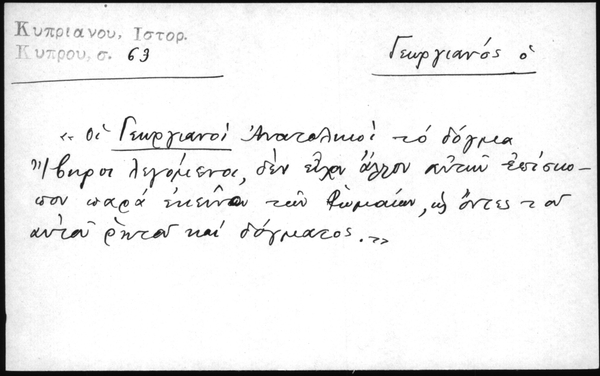 Κυπριανου, Ιστορ.
Κυπρου, σ. 63
Γεωργιανός ὁ
« Οἱ Γεωργιανοὶ Ἀνατολικοὶ τό δόγμα
Ἴβηροι λεγόμενοι, δέν εἶχον ἄλλον αὐτῶν ἐπίσκο-
πον παρά ἐκεῖνον τῶν Ῥωμαίων, ὡς ὄντες τοῦ
αὐτοῦ ῥητοῦ καί δόγματος. »